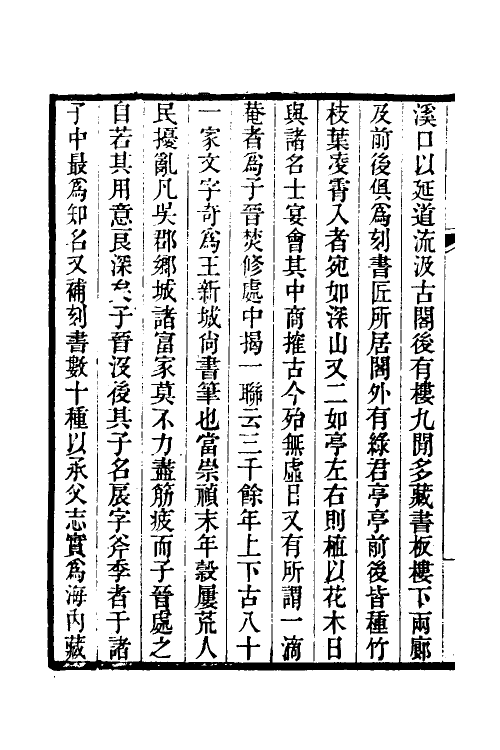 溪口以延道流汲古閣後有樓九間多藏書板樓下兩廊
及前後俱為刻書匠所居閣外有綠君亭亭前後皆種竹
枝葉凌霄入者宛如深山又二如亭左右則植以花木日
與諸名士宴會其中商搉古今殆無虛日又有所謂一滴
菴者為子晉焚修處中揭一聯云三千餘年上下古八十
一家文字奇為王新城尙書筆也當崇禎末年穀屢荒人
民擾亂凡吳郡鄉城諸富家莫不力盡筋疲而子晉處之
自若其用意良深矣子晉沒後其子名展字斧季者于諸
子中最為知名又補刻書數十種以承父志實為海內藏